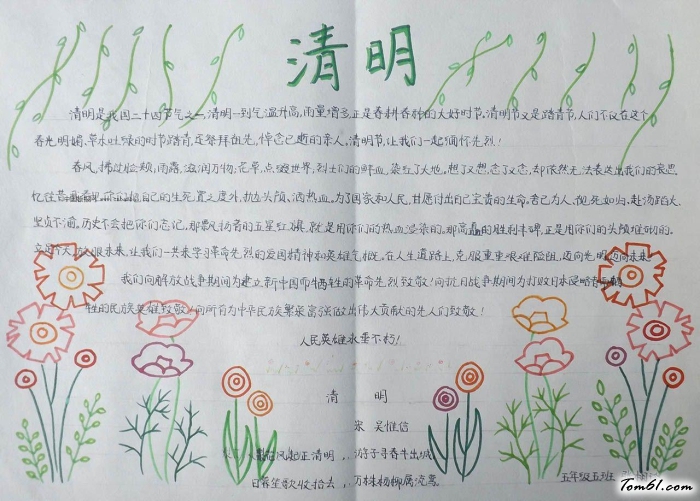 清明
清明是我国二十四节气之一,清明一到气温升高,雨量增多,正是春耕春种的大好时节,清明节又是踏青节,人们不仅在这个
春光明媚,草木吐绿的时节踏青,还祭拜祖先,悼念已逝的亲人,清明节,让我们一起缅怀先烈!
春风,拂过脸颊,雨露,滋润万物,花草,点缀世界,烈士们的鲜血,染红了大地。想了又想,念了又念,却依然无法表达出我们的哀思
忆往昔 自己的生死置之度外,抛头颅、洒热血。为了国家和人民,甘愿付出自己宝贵的生命。者已为人,视死如归、赴汤蹈火
坚贞不渝。历史不会把你们忘记,那飘扬着的五星红旗,就是用你们的热血浸染的,那高矗的胜利丰碑,正是用你们的头颅堆砌的。
立足今天,放眼未来,让我们一共来学习革命先烈的爱国精神和英雄气概,在人生道路上,克服重重艰难险阻,迈向光明,迈向未来
我们向解放战争期间为建立新中国而牺牲的革命先烈致敬!向抗日战争期间为打败日本侵略者
牲的民族英雄致敬!向所有为中华民族繁荣富强做出伟大贡献的先人们致敬!
人民英雄永垂不朽!
清 明
宋 吴惟信
花风起正清明,游子寻春半出城
日暮笙歌收拾去,万株杨柳属流莺
五年级五班
Tom61.com